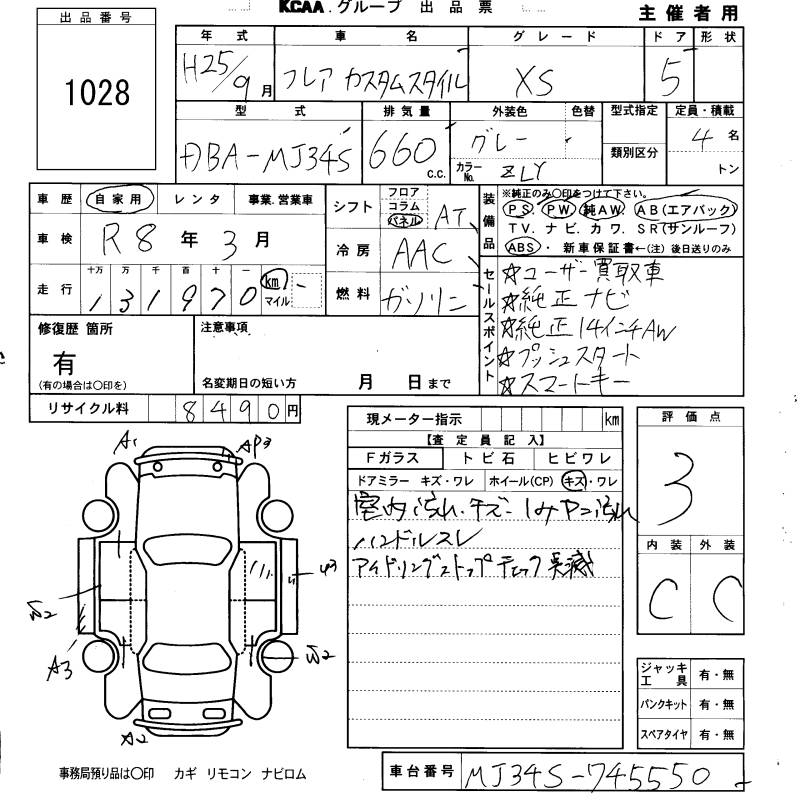 KCAA.グループ 出品票
主催者用
出品番号
1028
年式 車名 グレード ドア 形状
H25/9月 フレア カスタムスタイル XS 5
型式 排気量 外装色 色替 型式指定 定員・積載
DBA-MJ34S 660 c.c. グレー 類別区分 4名
カラーNo. ZLY トン
車歴 自家用 レンタ 事業.営業車
車検 R8年 3月
走行 十万 万 千 百 十 一
131970 km マイル
シフト フロア コラム パネル AT
冷房 AAC
燃料 ガソリン
装備品 ※純正のみ○印をつけて下さい。
PS. PW. 純AW. AB(エアバック)
TV. ナビ. カワ. SR(サンルーフ)
ABS・ 新車保証書←(注) 後日送りのみ
セールスポイント
☆ユーザー買取車
☆純正ナビ
☆純正14インチAW
☆プッシュスタート
☆スマートキー
修復歴 箇所
有
(有の場合は○印を)
注意事項
名変期日の短い方 月 日まで
リサイクル料 8490円
現メーター指示 km
【査定員記入】
Fガラス トビ石 ヒビワレ
ドアミラー キズ・ワレ ホイール(CP) キズ・ワレ
室内汚れ・キズ・シミ ヤニ汚れ
ハンドルスレ
アイドリングストップチェック 点滅
評価点
3
内装 外装
C C
A1
AP3
A3
A2
ジャッキ工具 有・無
パンクキット 有・無
スペアタイヤ 有・無
事務局預り品は○印 カギ リモコン ナビロム
車台番号 MJ34S-745550